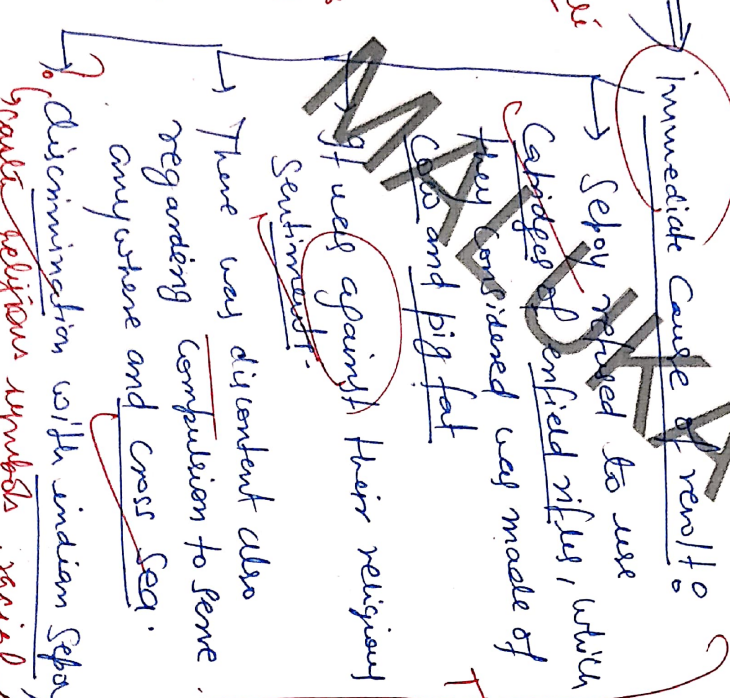 Immediate Cause of revolt:
→ Sepoy refused to use
Catridges of enfield rifles, which
they considered was made of
Cow and pig fat
→ It was against their religious
Sentiments.
→ There was discontent also
regarding compulsion to serve
anywhere and cross Sea.
→ discrimination with indian Sepo
caste religious symbols, racial
MALUKA